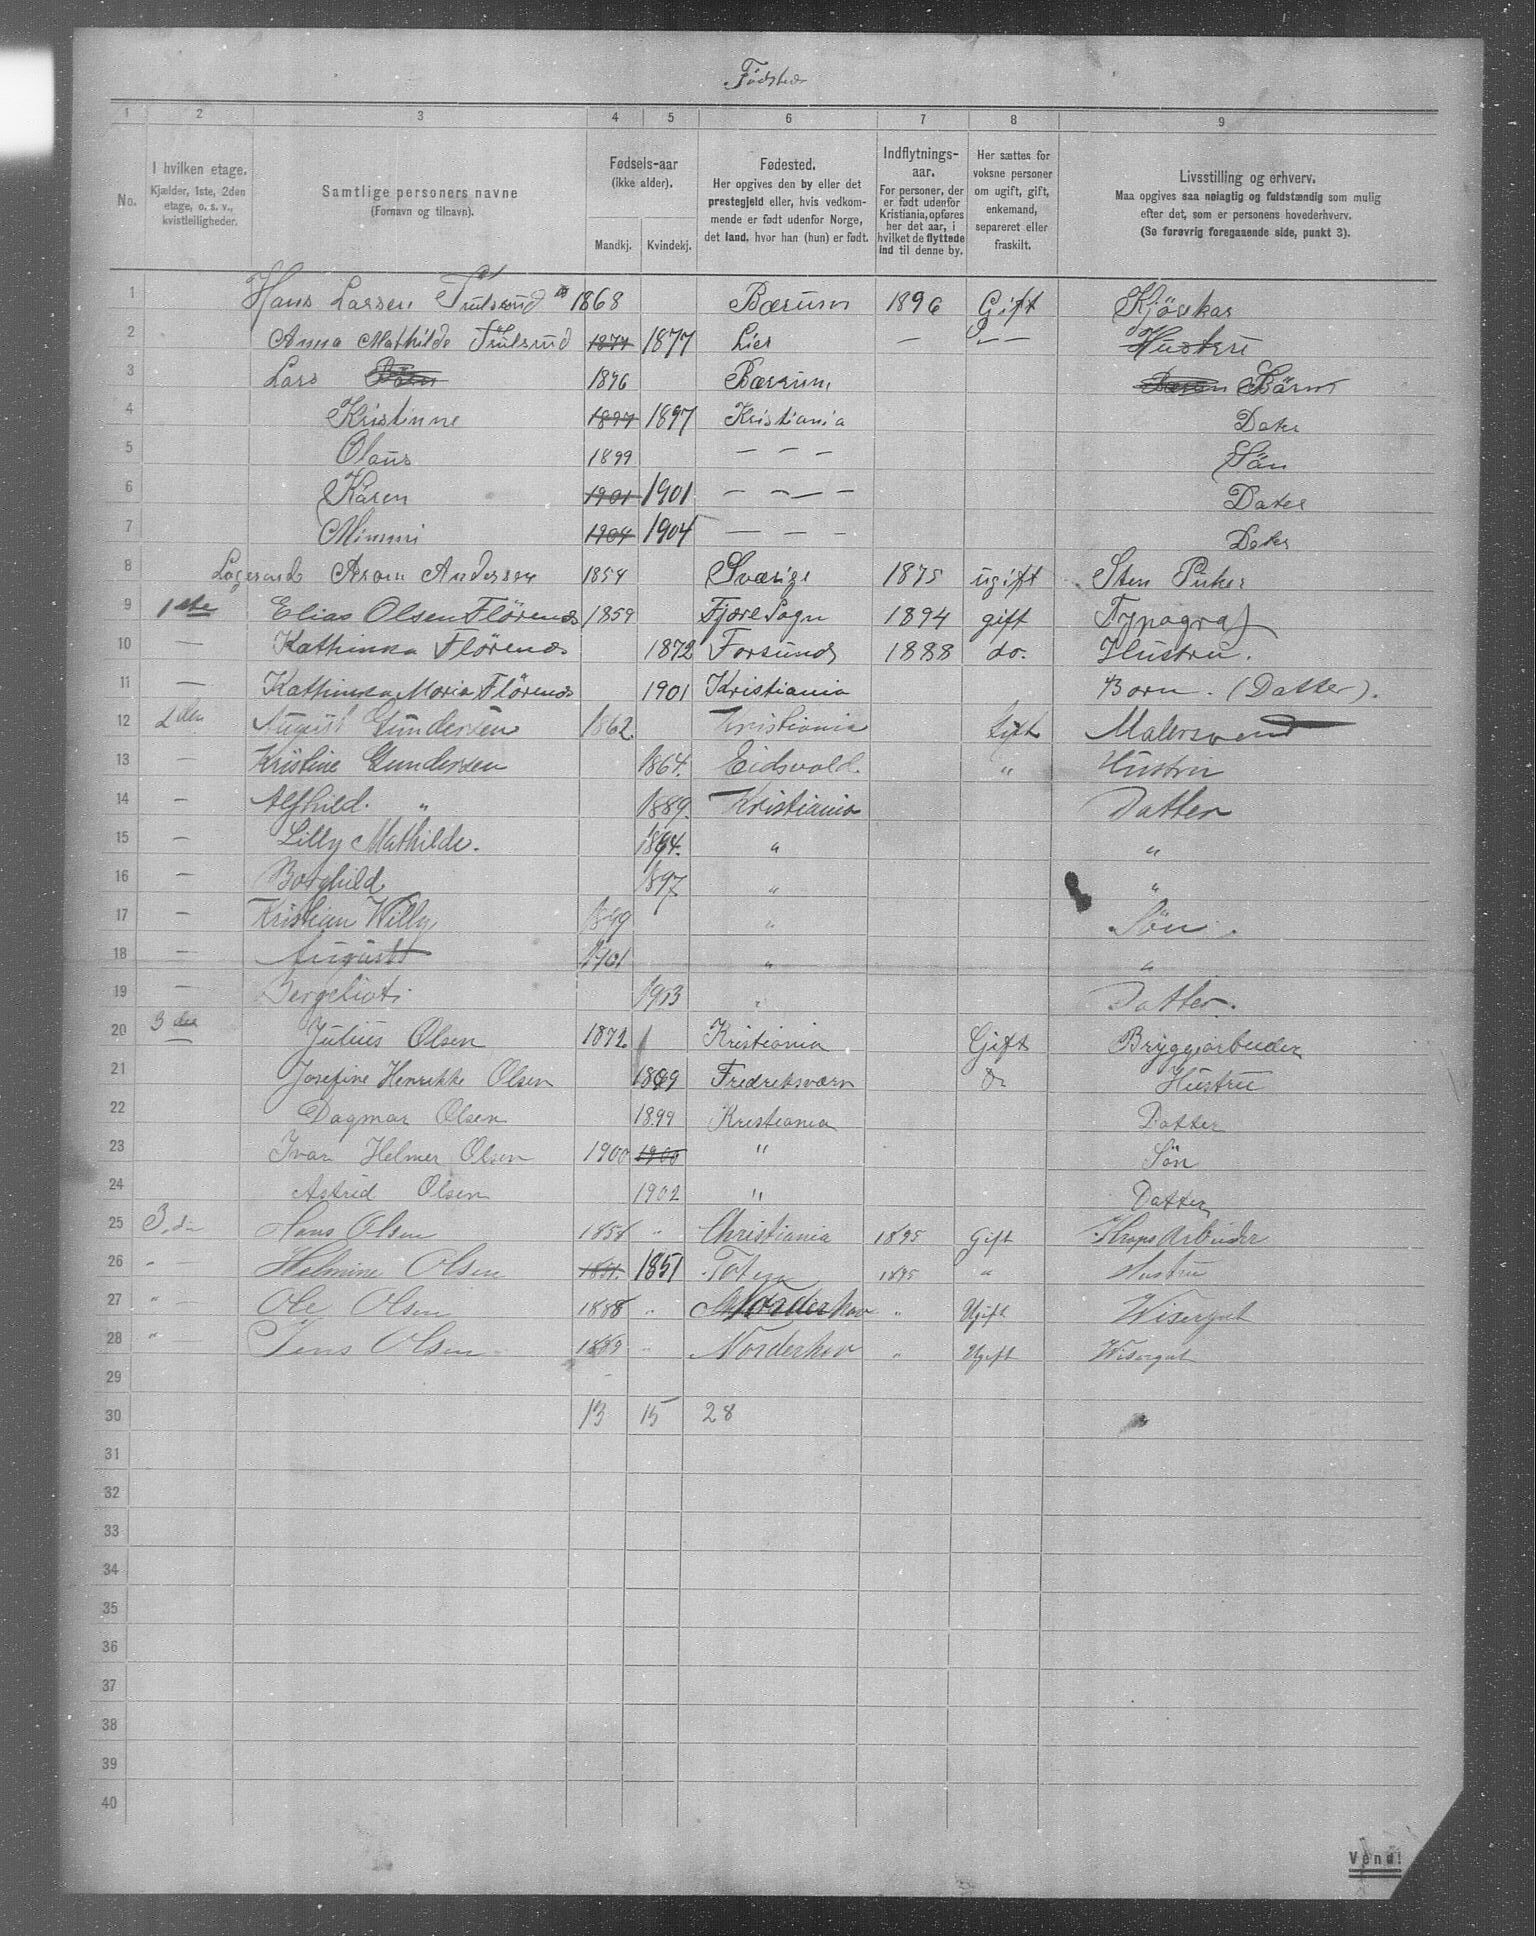 Födsteds
1 2 3 4 5 6 7 8 9
No. I hvilken etage. Kjælder, 1ste, 2den etage, o. s. v., kvistleiligheder. Samtlige personers navne (Fornavn og tilnavn). Fødsels-aar (ikke alder). Mandkj. Kvindekj. Fødested. Her opgives den by eller det prestegjeld eller, hvis vedkommende er født udenfor Norge, det land, hvor han (hun) er født. Indflytnings-aar. For personer, der er født udenfor Kristiania, opføres her det aar, i hvilket de flyttede ind til denne by. Her sættes for voksne personer om ugift, gift, enkemand, separeret eller fraskilt. Livsstilling og erhverv. Maa opgives saa nøiagtig og fuldstændig som mulig efter det, som er personens hovederhverv. (Se forøvrig foregaaende side, punkt 3).
1 Hans Larsen Tulsrud 1868 Bærum 1896 Gift Kjörkar
2 Anna Mathilde Tulsrud 1877 1877 Lier — " — Hustru
3 Lars Börn 1896 Bærum Börn
4 Kristinne 1897 1897 Kristiania Dater
5 Olaus 1899 — — — Sön
6 Karen 1901 1901 — — — Dater
7 Mimmi 1904 1904 — — — Dater
8 Logerende Aron Andersen 1854 Sværige 1875 ugift Sten Piker
9 1ste Elias Olsen Flörenes 1859 Fjære Sogn 1894 gift Typograf
10 — Kathinka Flörenes 1872 Farsund 1888 do. Hustru.
11 — Kathinka Maria Flörenes 1901 Kristiania Barn. (Datter).
12 2den August Gundersen 1862. Kristiania Gift Malersvend
13 — Kristine Gundersen 1864. Eidsvold. " Hustru
14 — Alfhild. " 1889. Kristiania Datter
15 — Lilly Mathilde. 1894. " "
16 — Borghild 1897 " "
17 — Kristian Willy 1899 " Sön.
18 — August 1901 " "
19 — Bergeliot 1903 " Datter.
20 3die Julius Olsen 1872 Kristiania Gift Bryggiarbeider
21 Josefine Henrikke Olsen 1869 Fredriksværn Do Hustru
22 Dagmar Olsen 1899 Kristiania Datter
23 Ivar Helmer Olsen 1900 1900 " Sön
24 Astrid Olsen 1902 " Datter
25 3die Hans Olsen 1858 " Christiania 1895 Gift
26 " — Helmine Olsen 1851. 1851 Toten 1895 " Hustru
27 " — Ole Olsen 1888 " Norderhov " Ugift Wisergut
28 " — Jens Olsen 1889 " Norderhov " Ugift Wisergut
29
30 13 15 28
31
32
33
34
35
36
37
38
39
40
Vend!